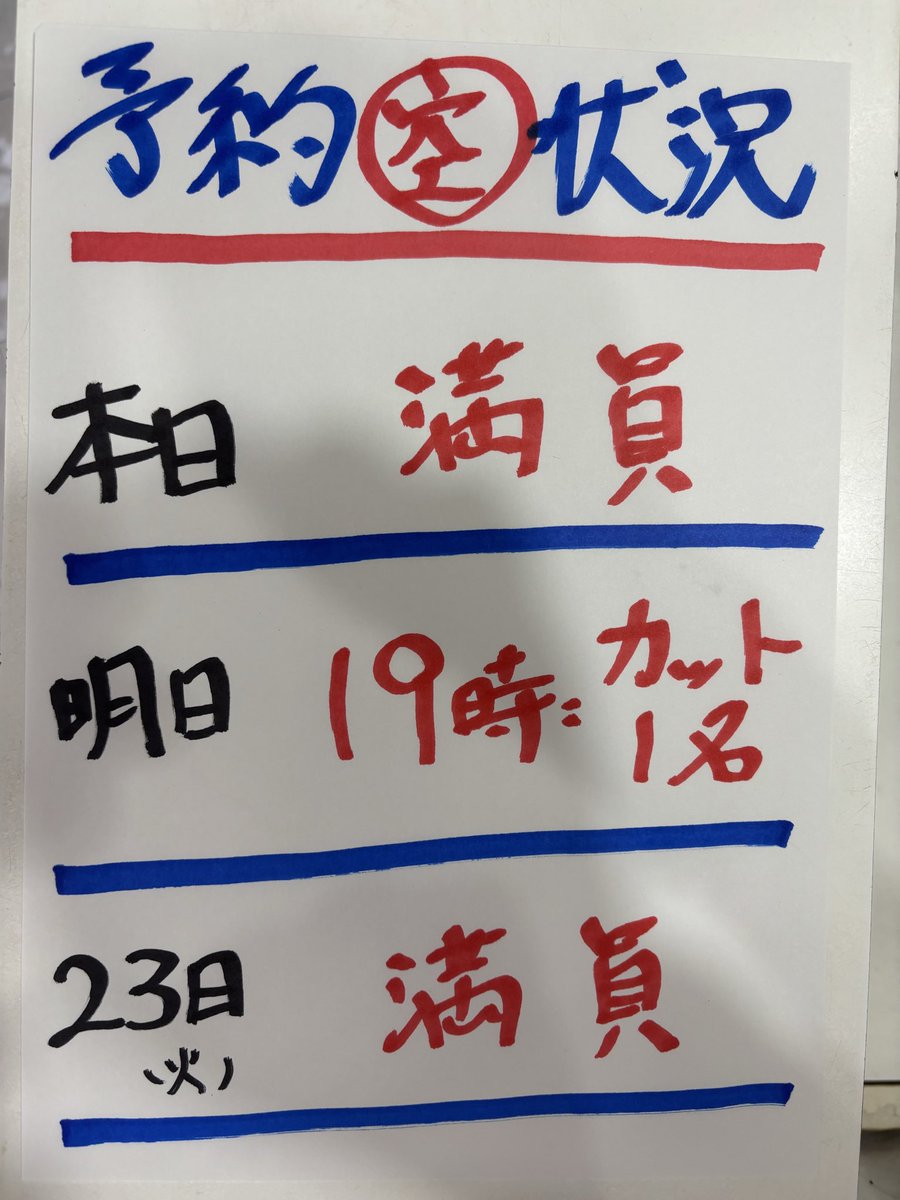 予約㊢状況
本日 満員
明日 19時: カット
1名
23日 満員
(火)